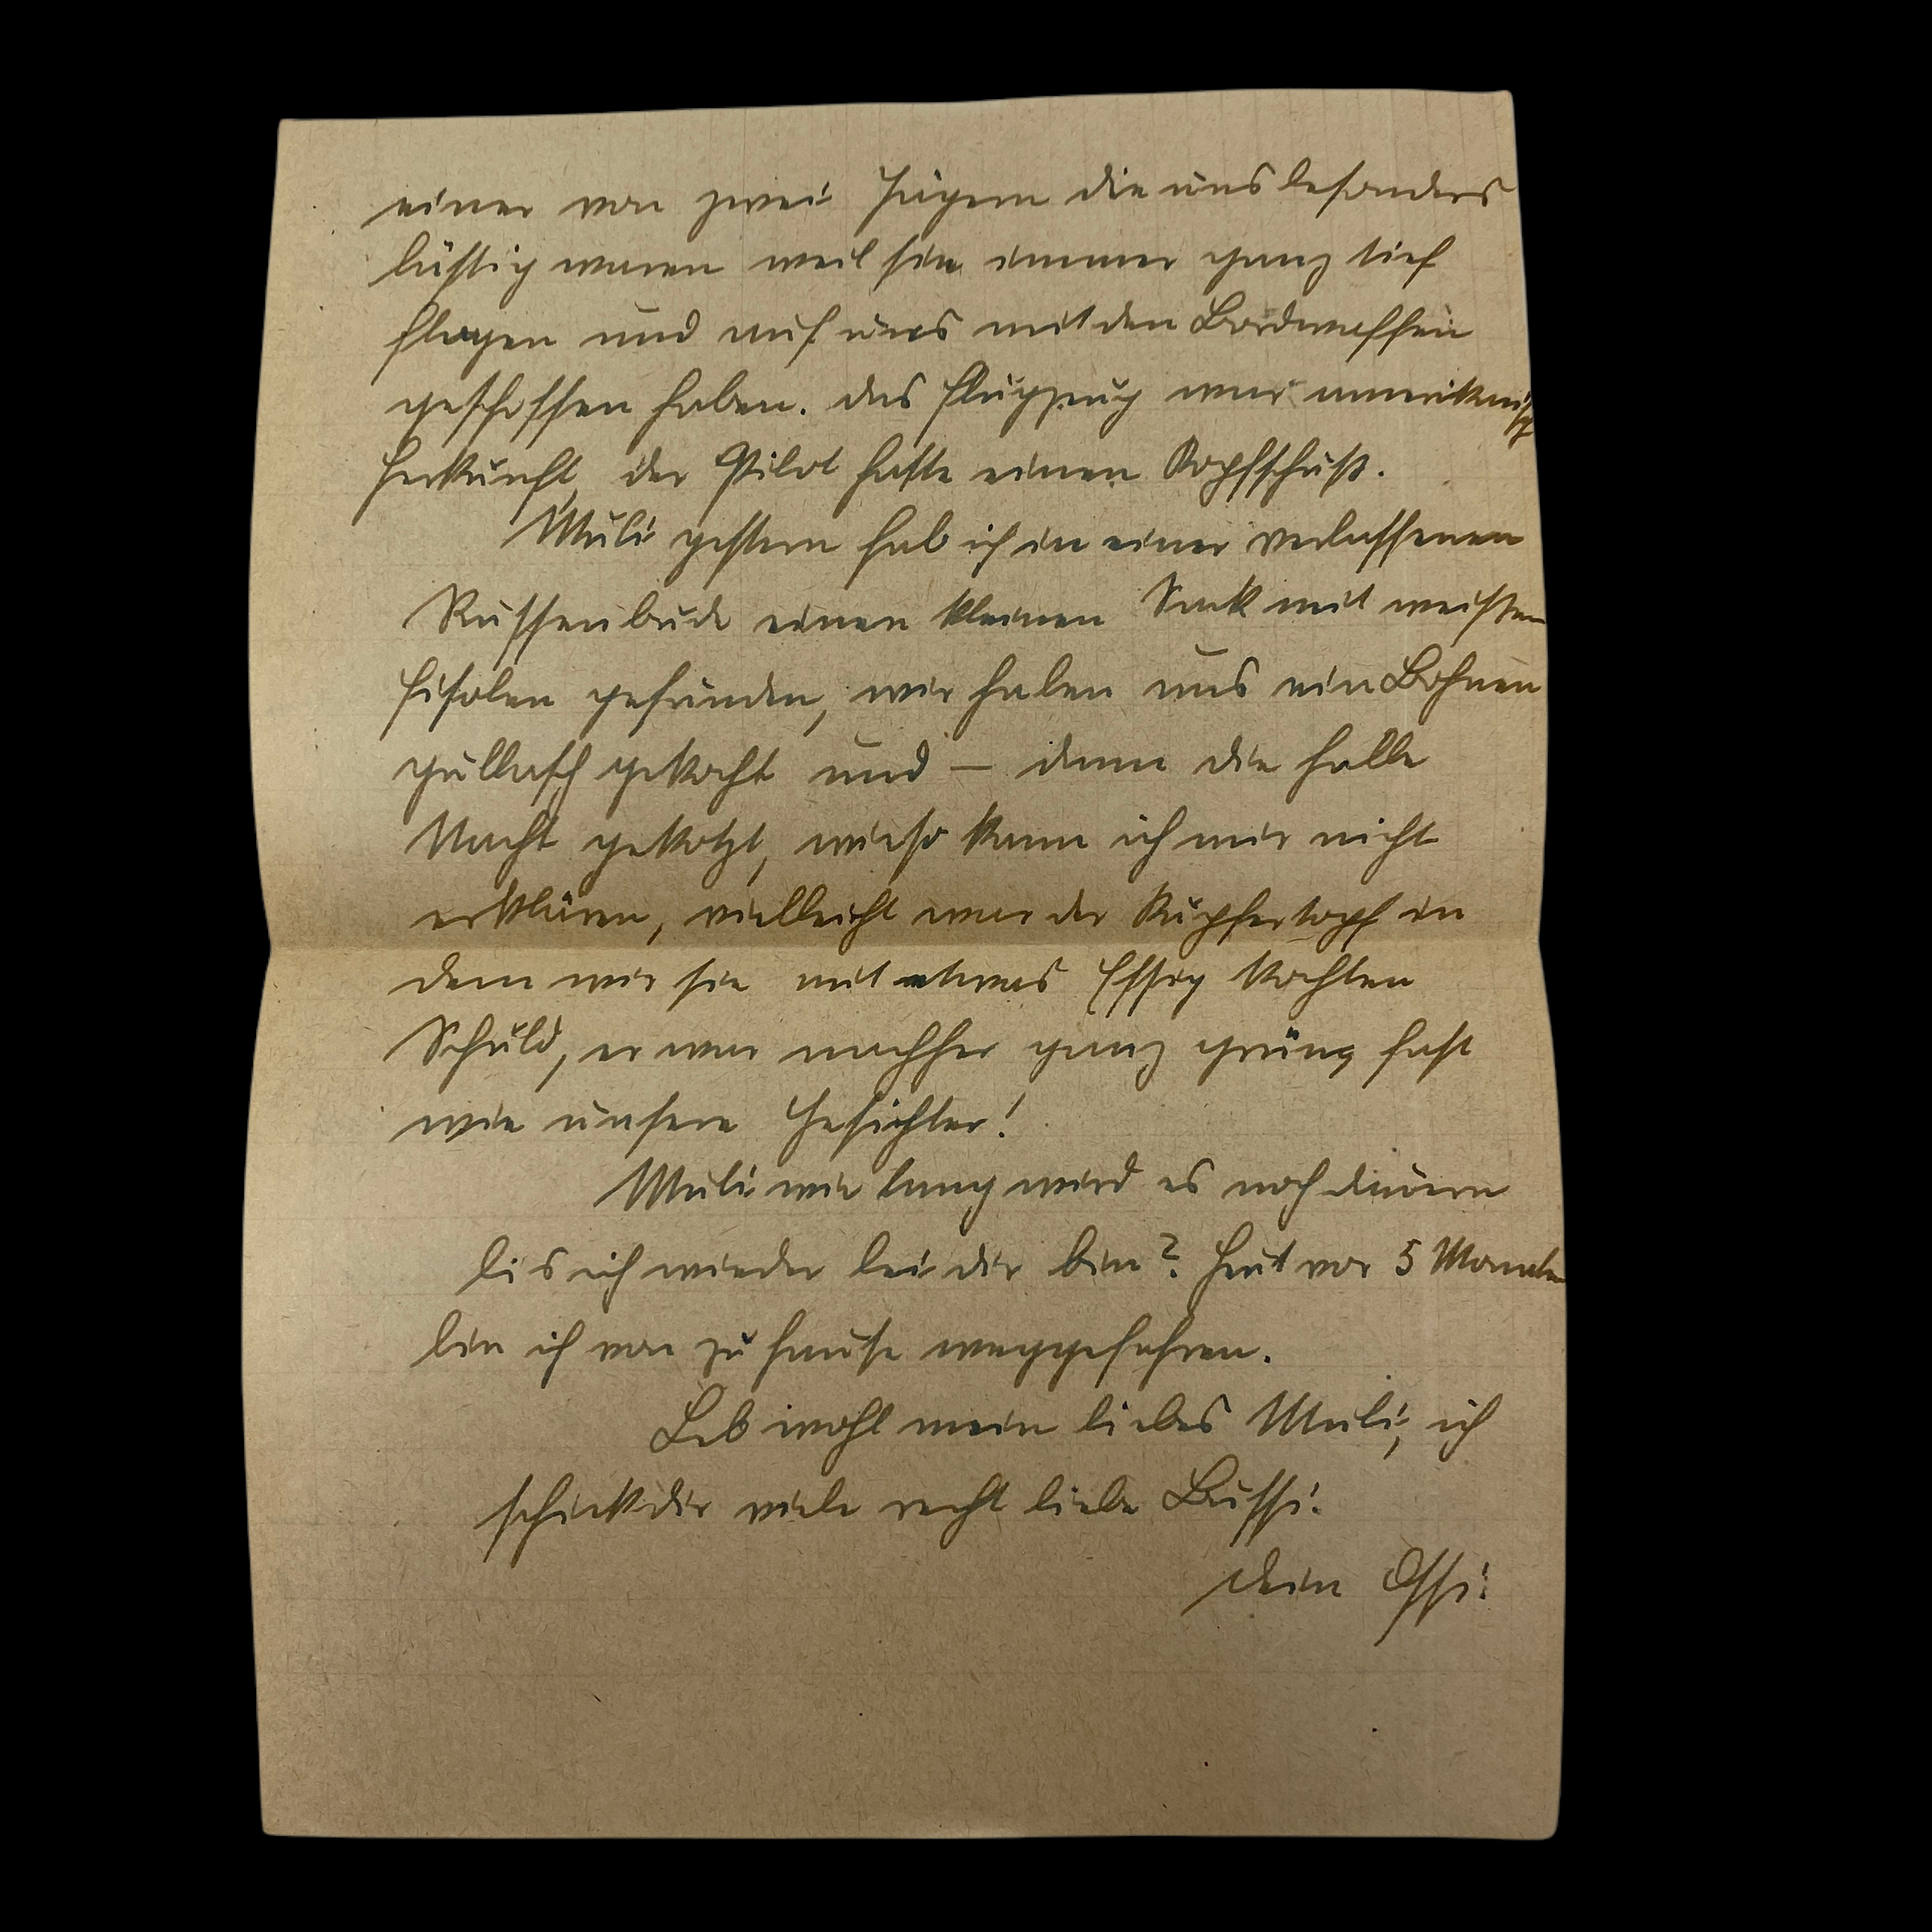 einer von zwei Jägern die uns besonders
lästig waren weil sie immer ganz tief
flogen und auf uns mit den Bordwaffen
geschossen haben. Das Flugzeug war amerikanisch
Herkunft, der Pilot hatte einen Kopfschuß.
Muli gestern hab ich in einer verlassenen
Russenbude einen kleinen Sack mit weißen
Fisolen gefunden, wir haben uns ein Bohnen
gullasch gekocht und — dann die halbe
Nacht gekotzt, wieso kann ich mir nicht
erklären, vielleicht war der Kupfertopf in
dem wir sie mit etwas Essig kochten
Schuld, er war nachher ganz grün, fast
wie unsere Gesichter!
Muli wie lang wird es noch dauern
bis ich wieder bei dir bin? Heut vor 5 Monaten
bin ich von zu hause weggefahren.
Leb wohl mein liebes Muli, ich
schick dir viele recht liebe Bussi.
Dein Ossi.